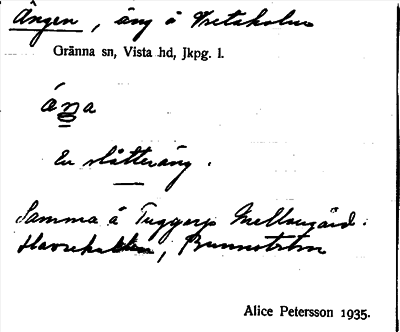 Ängen, äng å Vretaholm
Gränna sn, Vista hd, Jkpg. l.
áŋa
En slåtteräng.
Samma å Tuggarp Mellangård.
Brunnström
Alice Petersson 1935.